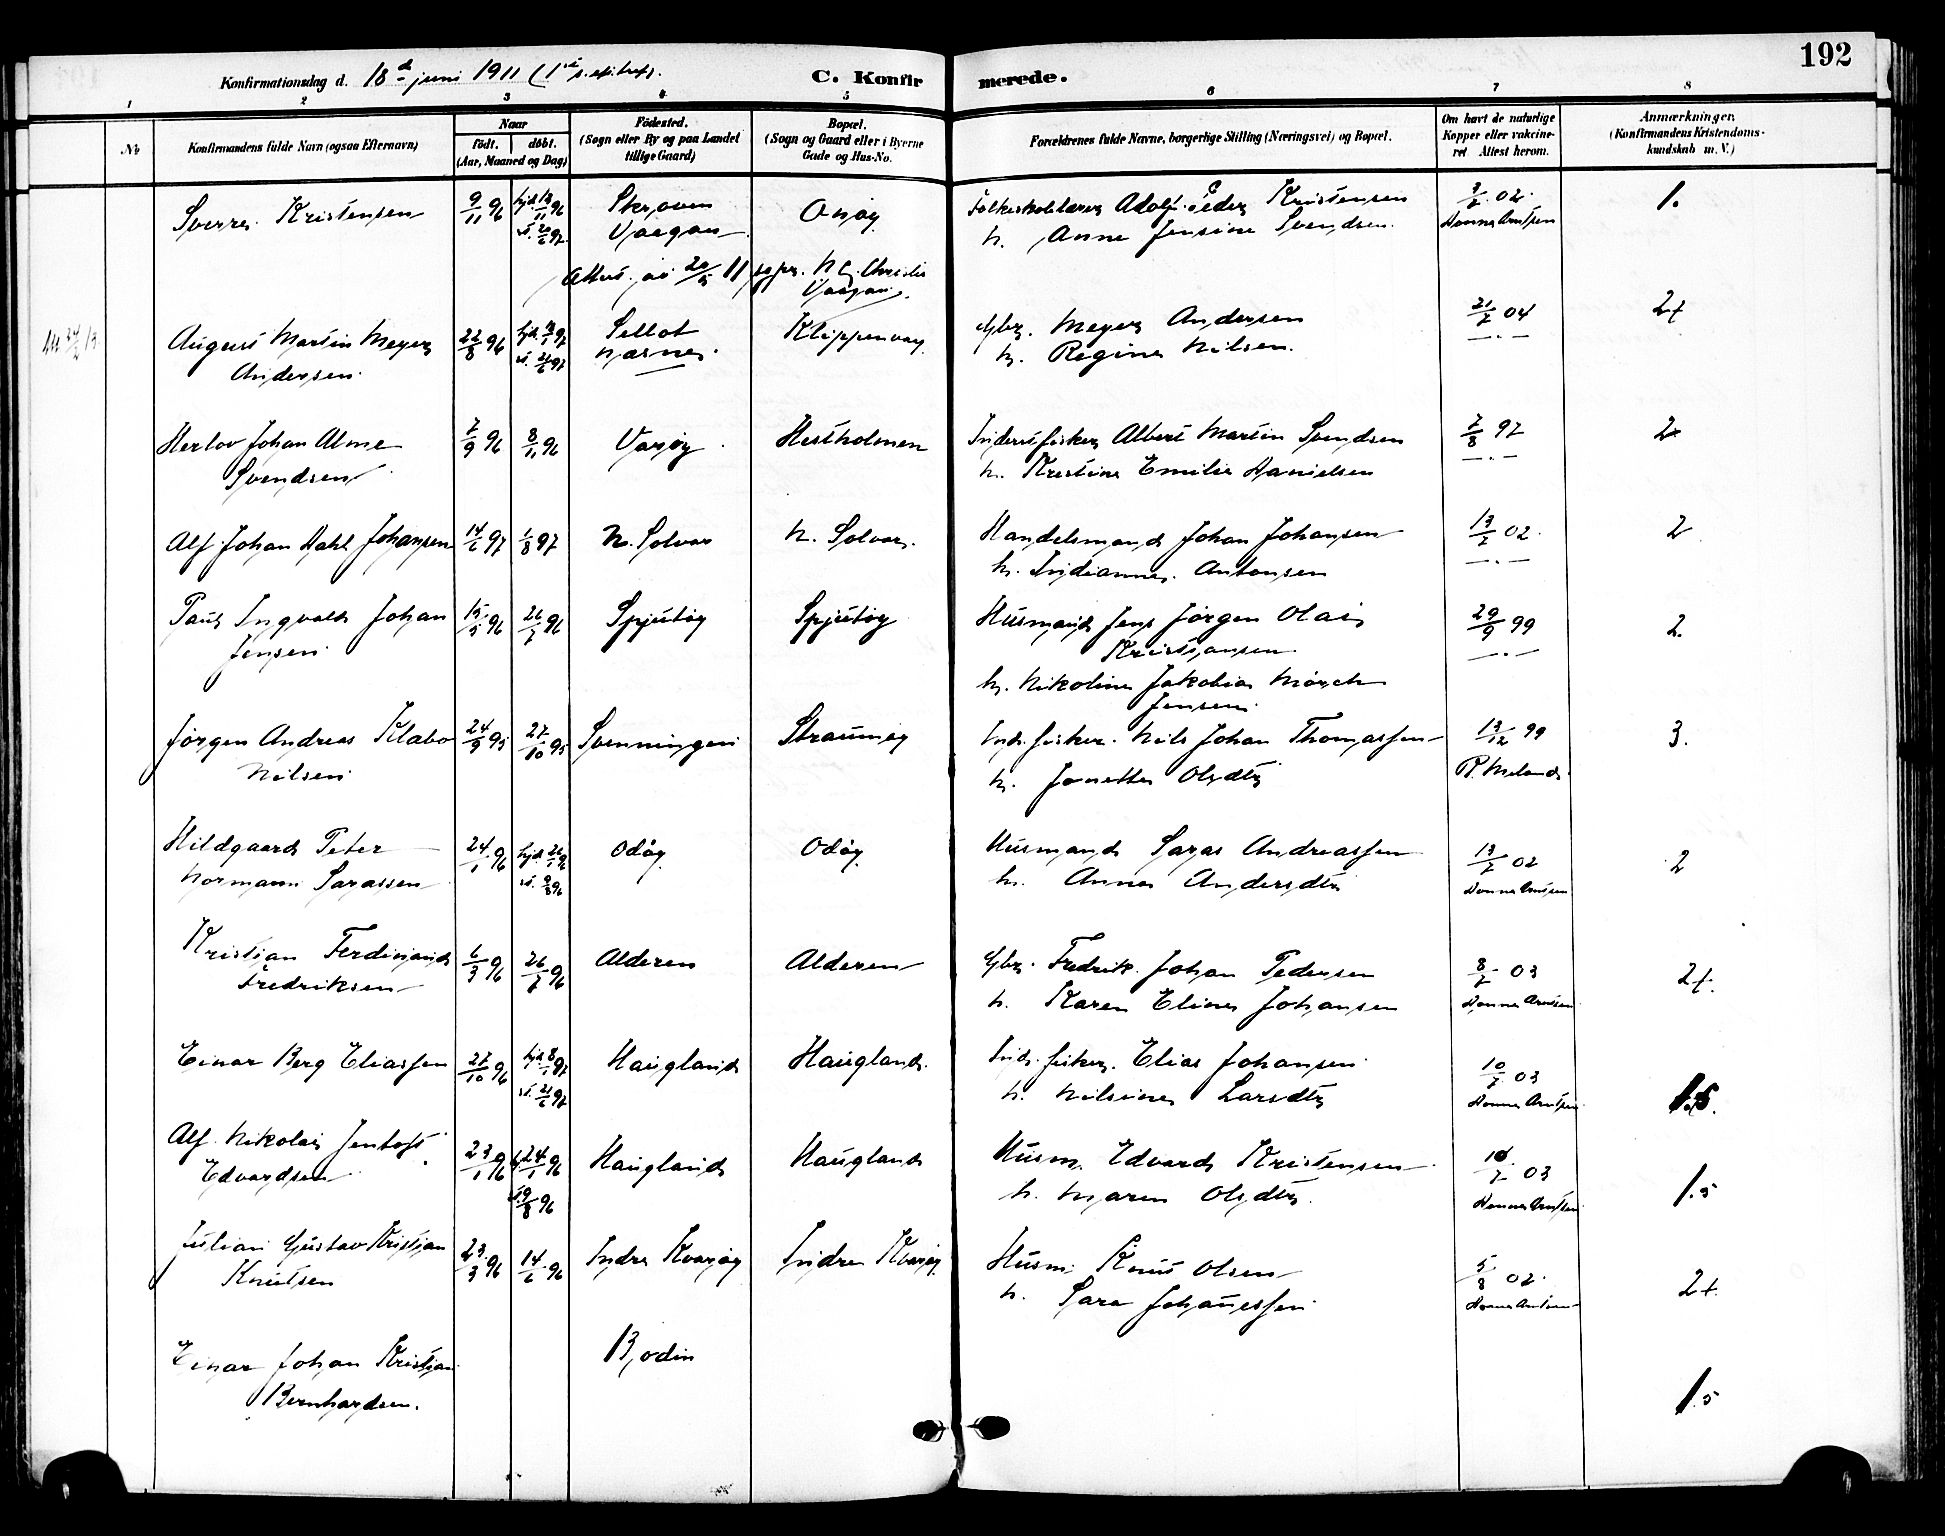 192
Konfirmationsdag d. 18 d juni 1911 (1 s. ef. tref.
C. Konfirmerede.
1 2 3 4 5 6 7 8
No
Konfirmandens fulde Navn (ogsaa Efternavn)
Naar
født. døbt.
(Aar, Maaned og Dag)
Fødested.
(Sogn eller By og paa Landet
tillige Gaard)
Bopæl.
(Sogn og Gaard eller i Byerne
Gade og Hus-No.
Forældrenes fulde Navne, borgerlige Stilling (Næringsvei) og Bopæl.
Om havt de naturlige
Kopper eller vakcine-
ret Attest herom.
Anmærkninger.
(Konfirmandens Kristendoms-
kundskab m. V.)
Sverre Kristensen 9/11 96 hjd. 13/11 96 Skroven Onøy Folkeskolelærer Adolf Peder Kristensen 02 1.
st. 20/6 97 Vaagan h. Anne Jensine Svendsen Hanna Arntsen
Attest. 20/5 11
Vaagan.
August Martin Meyer 22/8 96 Sellot Klippenvaag Gbr. Meyer Andersen 21/7 04 2+
Andersen Næsne. h. Regine Nilsen. — " —
Herlov Johan Alme 7/9 96 8/11 96 Varøy Hestholmen Inderstfisker Albert Martin Svendsen 7/8 97 2
Svendsen h. Kristine Emilie Danielsen — " —
Alf Johan Dahl Johansen 14/6 97 1/8 97 N. Solvær N. Solvær. Handelsmand Johan Johansen 13/7 02 2
h. Indianne Antonsen — " —
Paul Ingvald Johan 15/5 96 26/7 96 Spjutøy Spjutøy Husmand Jens Jørgen Olai 29/9 99 2.
Jensen Kristjansen — " —
h. Nikoline Jakobia Mørch
Jensen
Jørgen Andreas Klabo 24/9 95 27/10 95 Svenningen Straumøy Ind. fisker. Nils Johan Thomassen 13/12 99 3.
Nilsen h. Jonette Olsdtr P. Meland
Hildgaard Peter 24/1 96 hjd. 26/1 96 Odøy Odøy Husmand Saras Andreassen 13/7 02 2
Normann Sarassen st. 9/8 96 h. Anne Andersdtr Hanna Arntsen
Kristjan Ferdinand 6/3 96 26/7 96 Alderen Alderen Gbr. Fredrik Johan Pedersen 8/7 03 2+.
Fredriksen h. Karen Eline Johansen Hanna Arntsen
Einar Berg Eliassen 27/10 96 hjd 8/1 97 Haugland Haugland. Ind. fisker. Elias Johansen 10/7 03 1.5.
st. 21/6 97 h. Nilsine Larsdtr Hanna Arntsen
Alf Nikolai Jentoft 23/1 96 24/1 96 Haugland Haugland Husm. Edvard Kristensen 10/7 03 1.5
Edvardsen st. 9/8 96 h. Maren Olsdtr. Hanna Arntsen
Julian Gustav Kristjan 23/3 96 14/6 96 Indre Kvarøy Indre Kvarøy Husm. Knut Olsen 5/8 02. 2+.
Knutsen h. Sara Johanessen Hanna Arntsen
Einar Johan Kristjan Bodin
Bernhardsen. 1.5